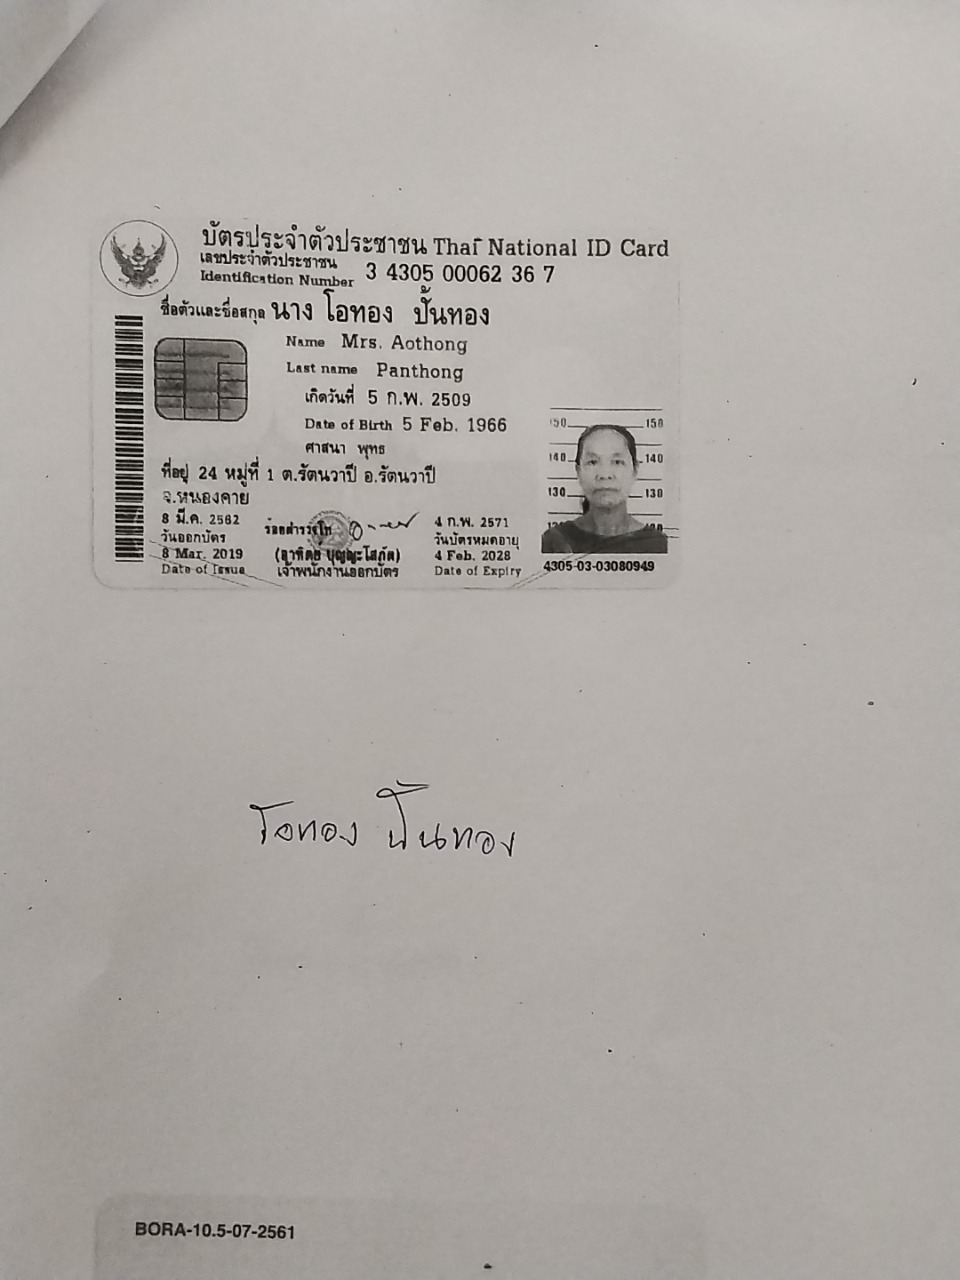 บัตรประจำตัวประชาชน Thai National ID Card
เลขประจำตัวประชาชน
Identification Number 3 4305 00062 36 7
ชื่อตัวและชื่อสกุล นาง โอทอง ปั้นทอง
Name Mrs. Aothong
Last name Panthong
เกิดวันที่ 5 ก.พ. 2509
Date of Birth 5 Feb. 1966
ศาสนา พุทธ
ที่อยู่ 24 หมู่ที่ 1 ต.รัตนวาปี อ.รัตนวาปี
จ.หนองคาย
8 มี.ค. 2562
วันออกบัตร
8 Mar. 2019
Date of Issue
ร้อยตำรวจโท
(อาทิตย์ บุญญะโสภัต)
เจ้าพนักงานออกบัตร
4 ก.พ. 2571
วันบัตรหมดอายุ
4 Feb. 2028
Date of Expiry
150 150
140 140
130 130
4305-03-03080949
โอทอง ปั้นทอง
BORA-10.5-07-2561